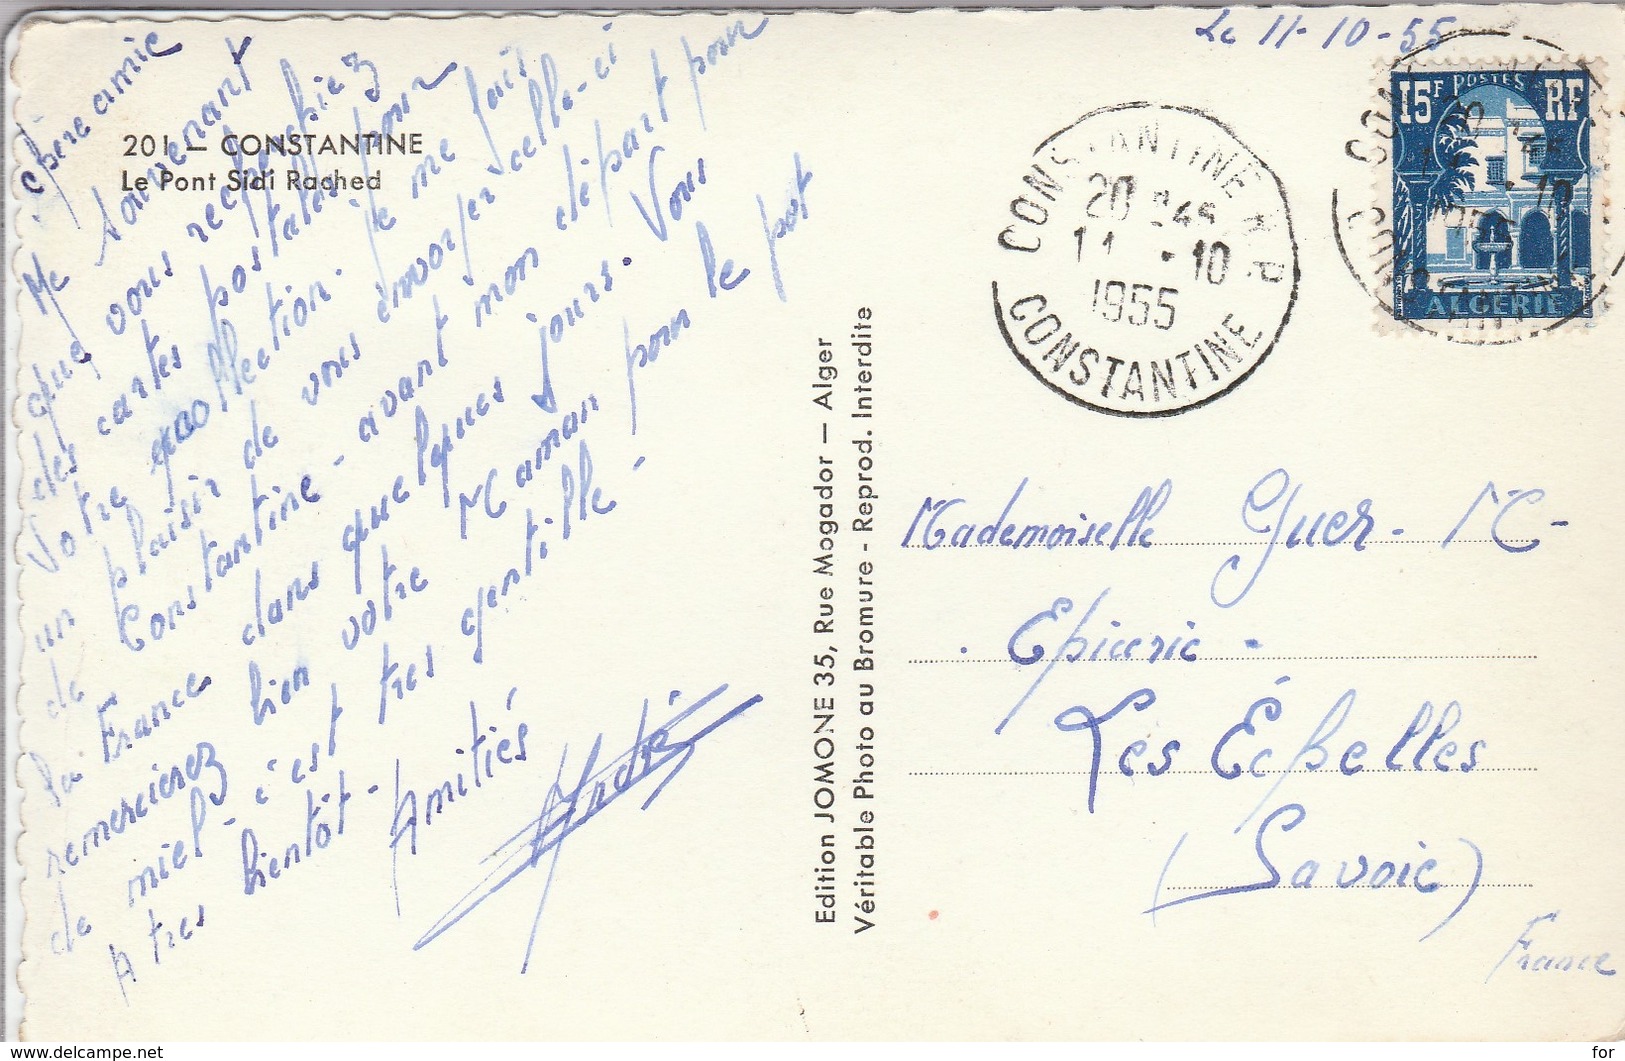 Le 11-10-55
201 — CONSTANTINE
Le Pont Sidi Rached
Chère amie
Me souvenant
que vous recherchiez
des cartes postales pour
votre collection. Je me fais
un plaisir de vous envoyer celle-ci
de Constantine - avant mon départ pour
la France dans quelques jours. Vous
remercierez bien votre Maman pour le pot
de miel - c'est très gentille -
A très bientôt - Amitiés
André
Edition JOMONE 35, Rue Mogador — Alger
Véritable Photo au Bromure - Reprod. Interdite
CONSTANTINE R.P
20 H45
11 -10
1955
CONSTANTINE
15F POSTES RF
ALGERIE
Mademoiselle Guer- MC-
Epicerie -
Les Échelles
(Savoie)
France
https://www.delcampe.net
for